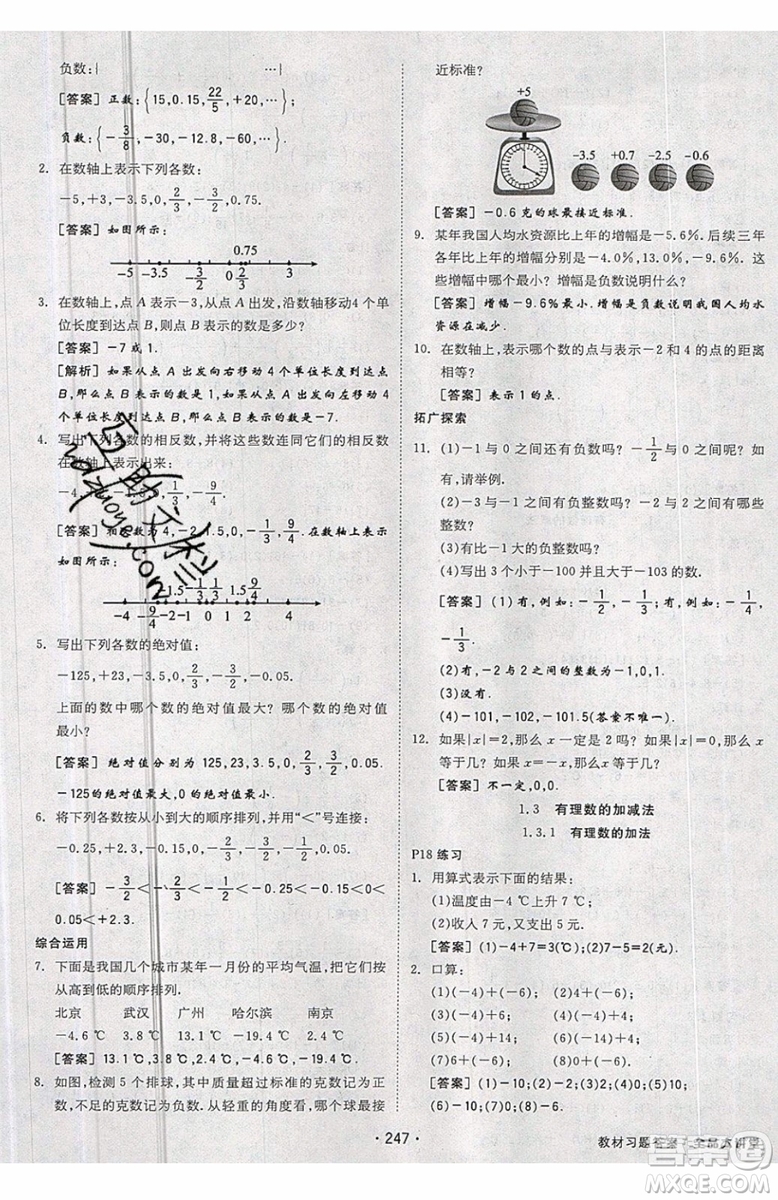 负数:{ …}
[答案] 正数:{15,0.15,22/5,+20,…};
负数:{-3/8,-30,-12.8,-60,…}
2. 在数轴上表示下列各数:
-5,+3,-3.5,0,2/3,-3/2,0.75.
[答案] 如图所示:
0.75
-5 -3.5 -3/2 0 2/3 +3
3. 在数轴上,点 A 表示-3,从点 A 出发,沿数轴移动4个单
位长度到达点 B,则点 B 表示的数是多少?
[答案] -7或1.
[解析] 如果从点 A 出发向右移动 4 个单位长度到达点
B,那么点 B 表示的数是 1;如果从点 A 出发向左移动
4 个单位长度到达点 B,那么点 B 表示的数是-7.
4. 写出下列各数的相反数,并将这些数连同它们的相反数
在数轴上表示出来:
-4,
-1.5,0,1/3,-9/4.
[答案] 相反数为 4,-2,1.5,0,-1/3,9/4.在数轴上表示
如图所示:
-4 -9/4 -2 -1.5 -1/3 0 1/3 1.5 2 9/4 4
5. 写出下列各数的绝对值:
-125,+23,-3.5,0,2/3,-3/2,-0.05.
上面的数中哪个数的绝对值最大? 哪个数的绝对值
最小?
[答案] 绝对值分别为 125,23,3.5,0,2/3,3/2,0.05.
-125的绝对值最大,0的绝对值最小.
6. 将下列各数按从小到大的顺序排列,并用“<”号连接:
-0.25,+2.3,-0.15,0,-2/3,-3/2,-1/2,0.05.
[答案] -3/2<-2/3<-1/2<-0.25<-0.15<0<
0.05<+2.3.
综合运用
7. 下面是我国几个城市某年一月份的平均气温,把它们按
从高到低的顺序排列.
北京 武汉 广州 哈尔滨 南京
-4.6 ℃ 3.8 ℃ 13.1 ℃ -19.4 ℃ 2.4 ℃
[答案] 13.1 ℃,3.8 ℃,2.4 ℃,-4.6 ℃,-19.4 ℃.
8. 如图,检测 5 个排球,其中质量超过标准的克数记为正
数,不足的克数记为负数. 从轻重的角度看,哪个球最接
近标准?
+5
-3.5 +0.7 -2.5 -0.6
[答案] -0.6 克的球最接近标准.
9. 某年我国人均水资源比上年的增幅是-5.6%. 后续三年
各年比上年的增幅分别是-4.0%,13.0%,-9.6%. 这
些增幅中哪个最小? 增幅是负数说明什么?
[答案] 增幅-9.6%最小.增幅是负数说明我国人均水
资源在减少.
10. 在数轴上,表示哪个数的点与表示-2和4的点的距离
相等?
[答案] 表示1的点.
拓广探索
11. (1)-1 与 0 之间还有负数吗? -1/2与 0 之间呢? 如
有,请举例.
(2)-3 与-1 之间有负整数吗? -2 与 2 之间有哪些
整数?
(3)有比-1 大的负整数吗?
(4)写出 3 个小于-100 并且大于-103 的数.
[答案] (1)有,例如:-1/2,-1/3;有,例如:-1/4,
-1/3.
(2)有;-2 与 2 之间的整数为-1,0,1.
(3)没有.
(4)-101,-102,-101.5(答案不唯一).
12. 如果|x|=2,那么 x 一定是 2 吗? 如果|x|=0,那么 x
等于几? 如果 x=-x,那么 x 等于几?
[答案] 不一定,0,0.
1.3 有理数的加减法
1.3.1 有理数的加法
P18 练习
1. 用算式表示下面的结果:
(1)温度由-4 ℃上升 7 ℃;
(2)收入 7 元,又支出 5 元.
[答案] (1)-4+7=3(℃);(2)7-5=2(元).
2. 口算:
(1)(-4)+(-6); (2)4+(-6);
(3)(-4)+6; (4)(-4)+4;
(5)(-4)+14; (6)(-14)+4;
(7)6+(-6); (8)0+(-6).
[答案] (1)-10;(2)-2;(3)2;(4)0;(5)10;
· 247 ·
教材习题答案 · 全品大讲堂